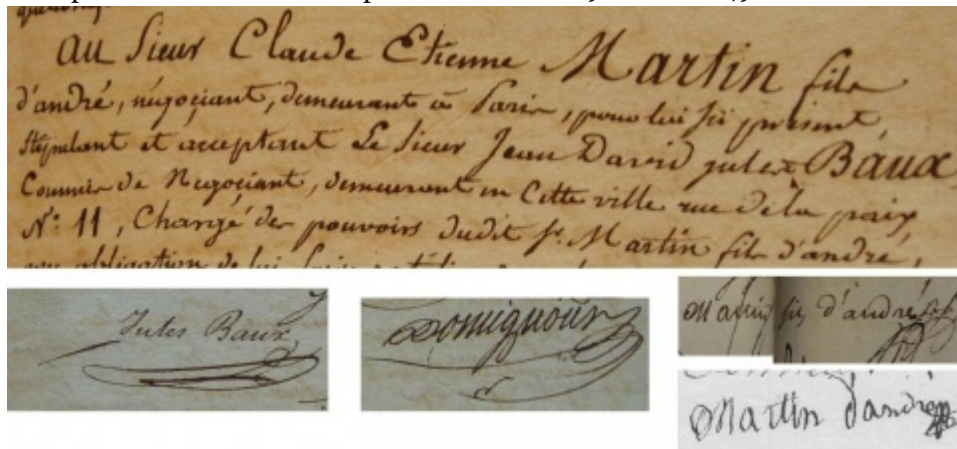 au Sieur Claude Etienne Martin fils
d'andré, négoçiant, demeurant à Paris, pour lui ici présent,
Stipulant et acceptant Le Sieur Jean David jules Baux
Commis de Negoçiant, demeurant en Cette ville rue de la paix
N° 11, Chargé des pouvoirs dudit Sr. Martin fils d'andré,
obligation de lui
Jules Baux
Martin fils d'andré
Martin d'andré